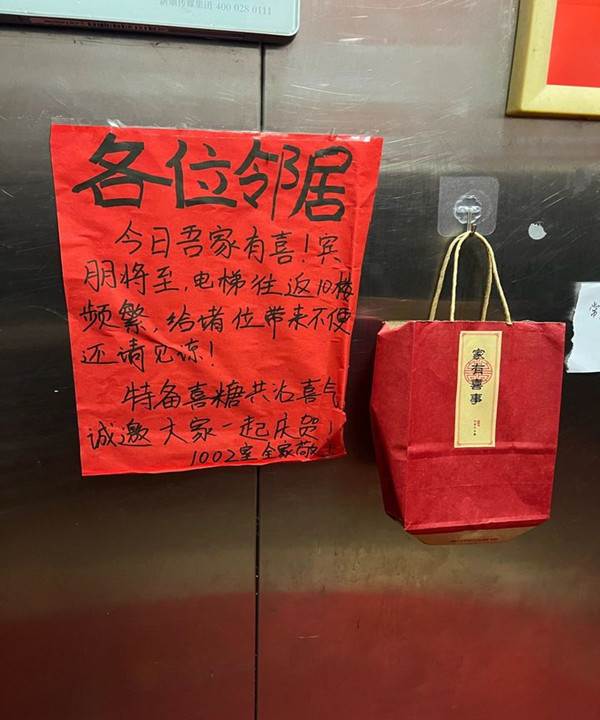 新潮传媒集团 400 028 0111
各位邻居
今日吾家有喜!宾
朋将至,电梯往返10楼
频繁,给诸位带来不便
还请见谅!
特备喜糖共沾喜气
诚邀大家一起庆贺!
1002室全家敬
家有喜事